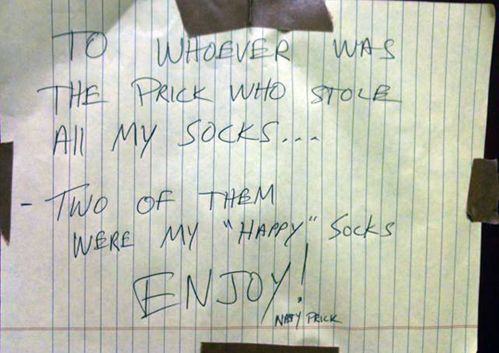 TO WHOEVER WAS
THE PRICK WHO STOLE
All MY SOCKS...
- TWO OF THEM
WERE MY "HAPPY" SOCKS
ENJOY!
PRICK